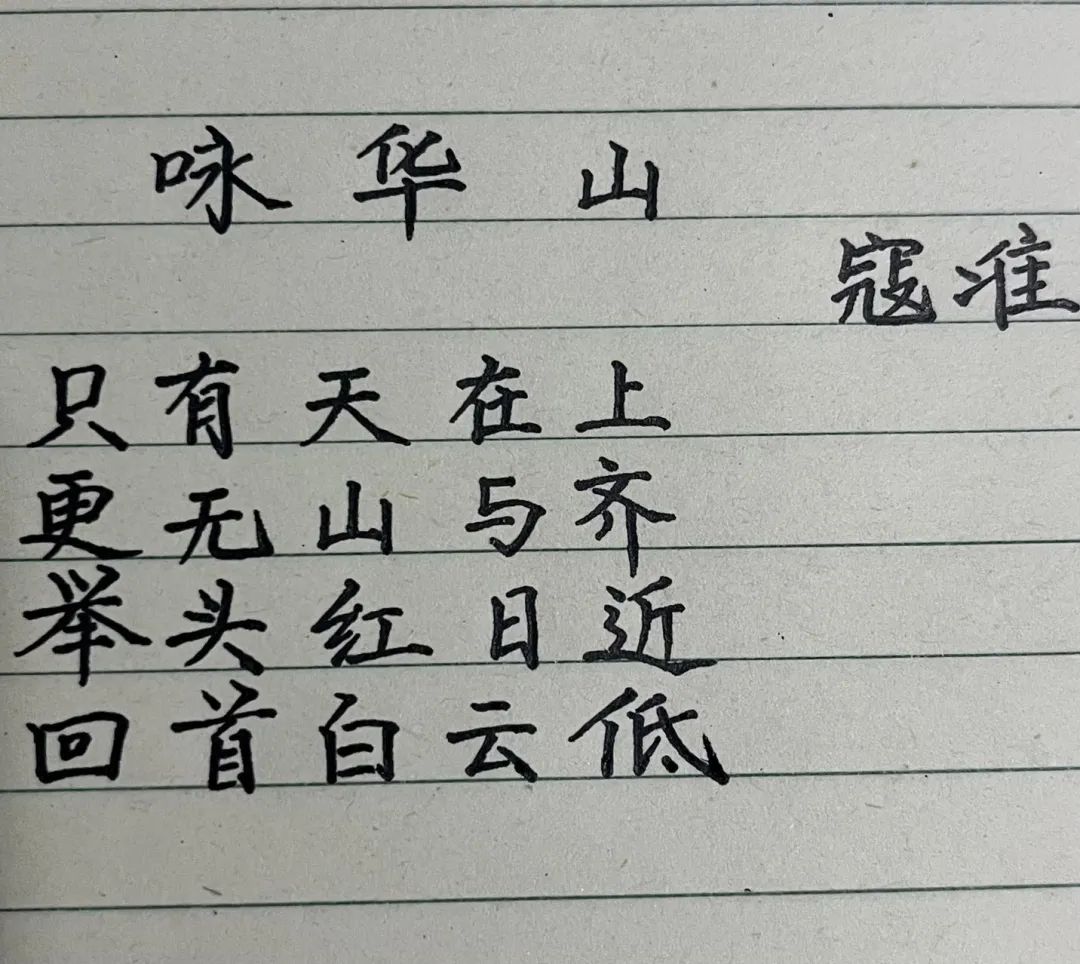 咏华山
寇准
只有天在上
更无山与齐
举头红日近
回首白云低